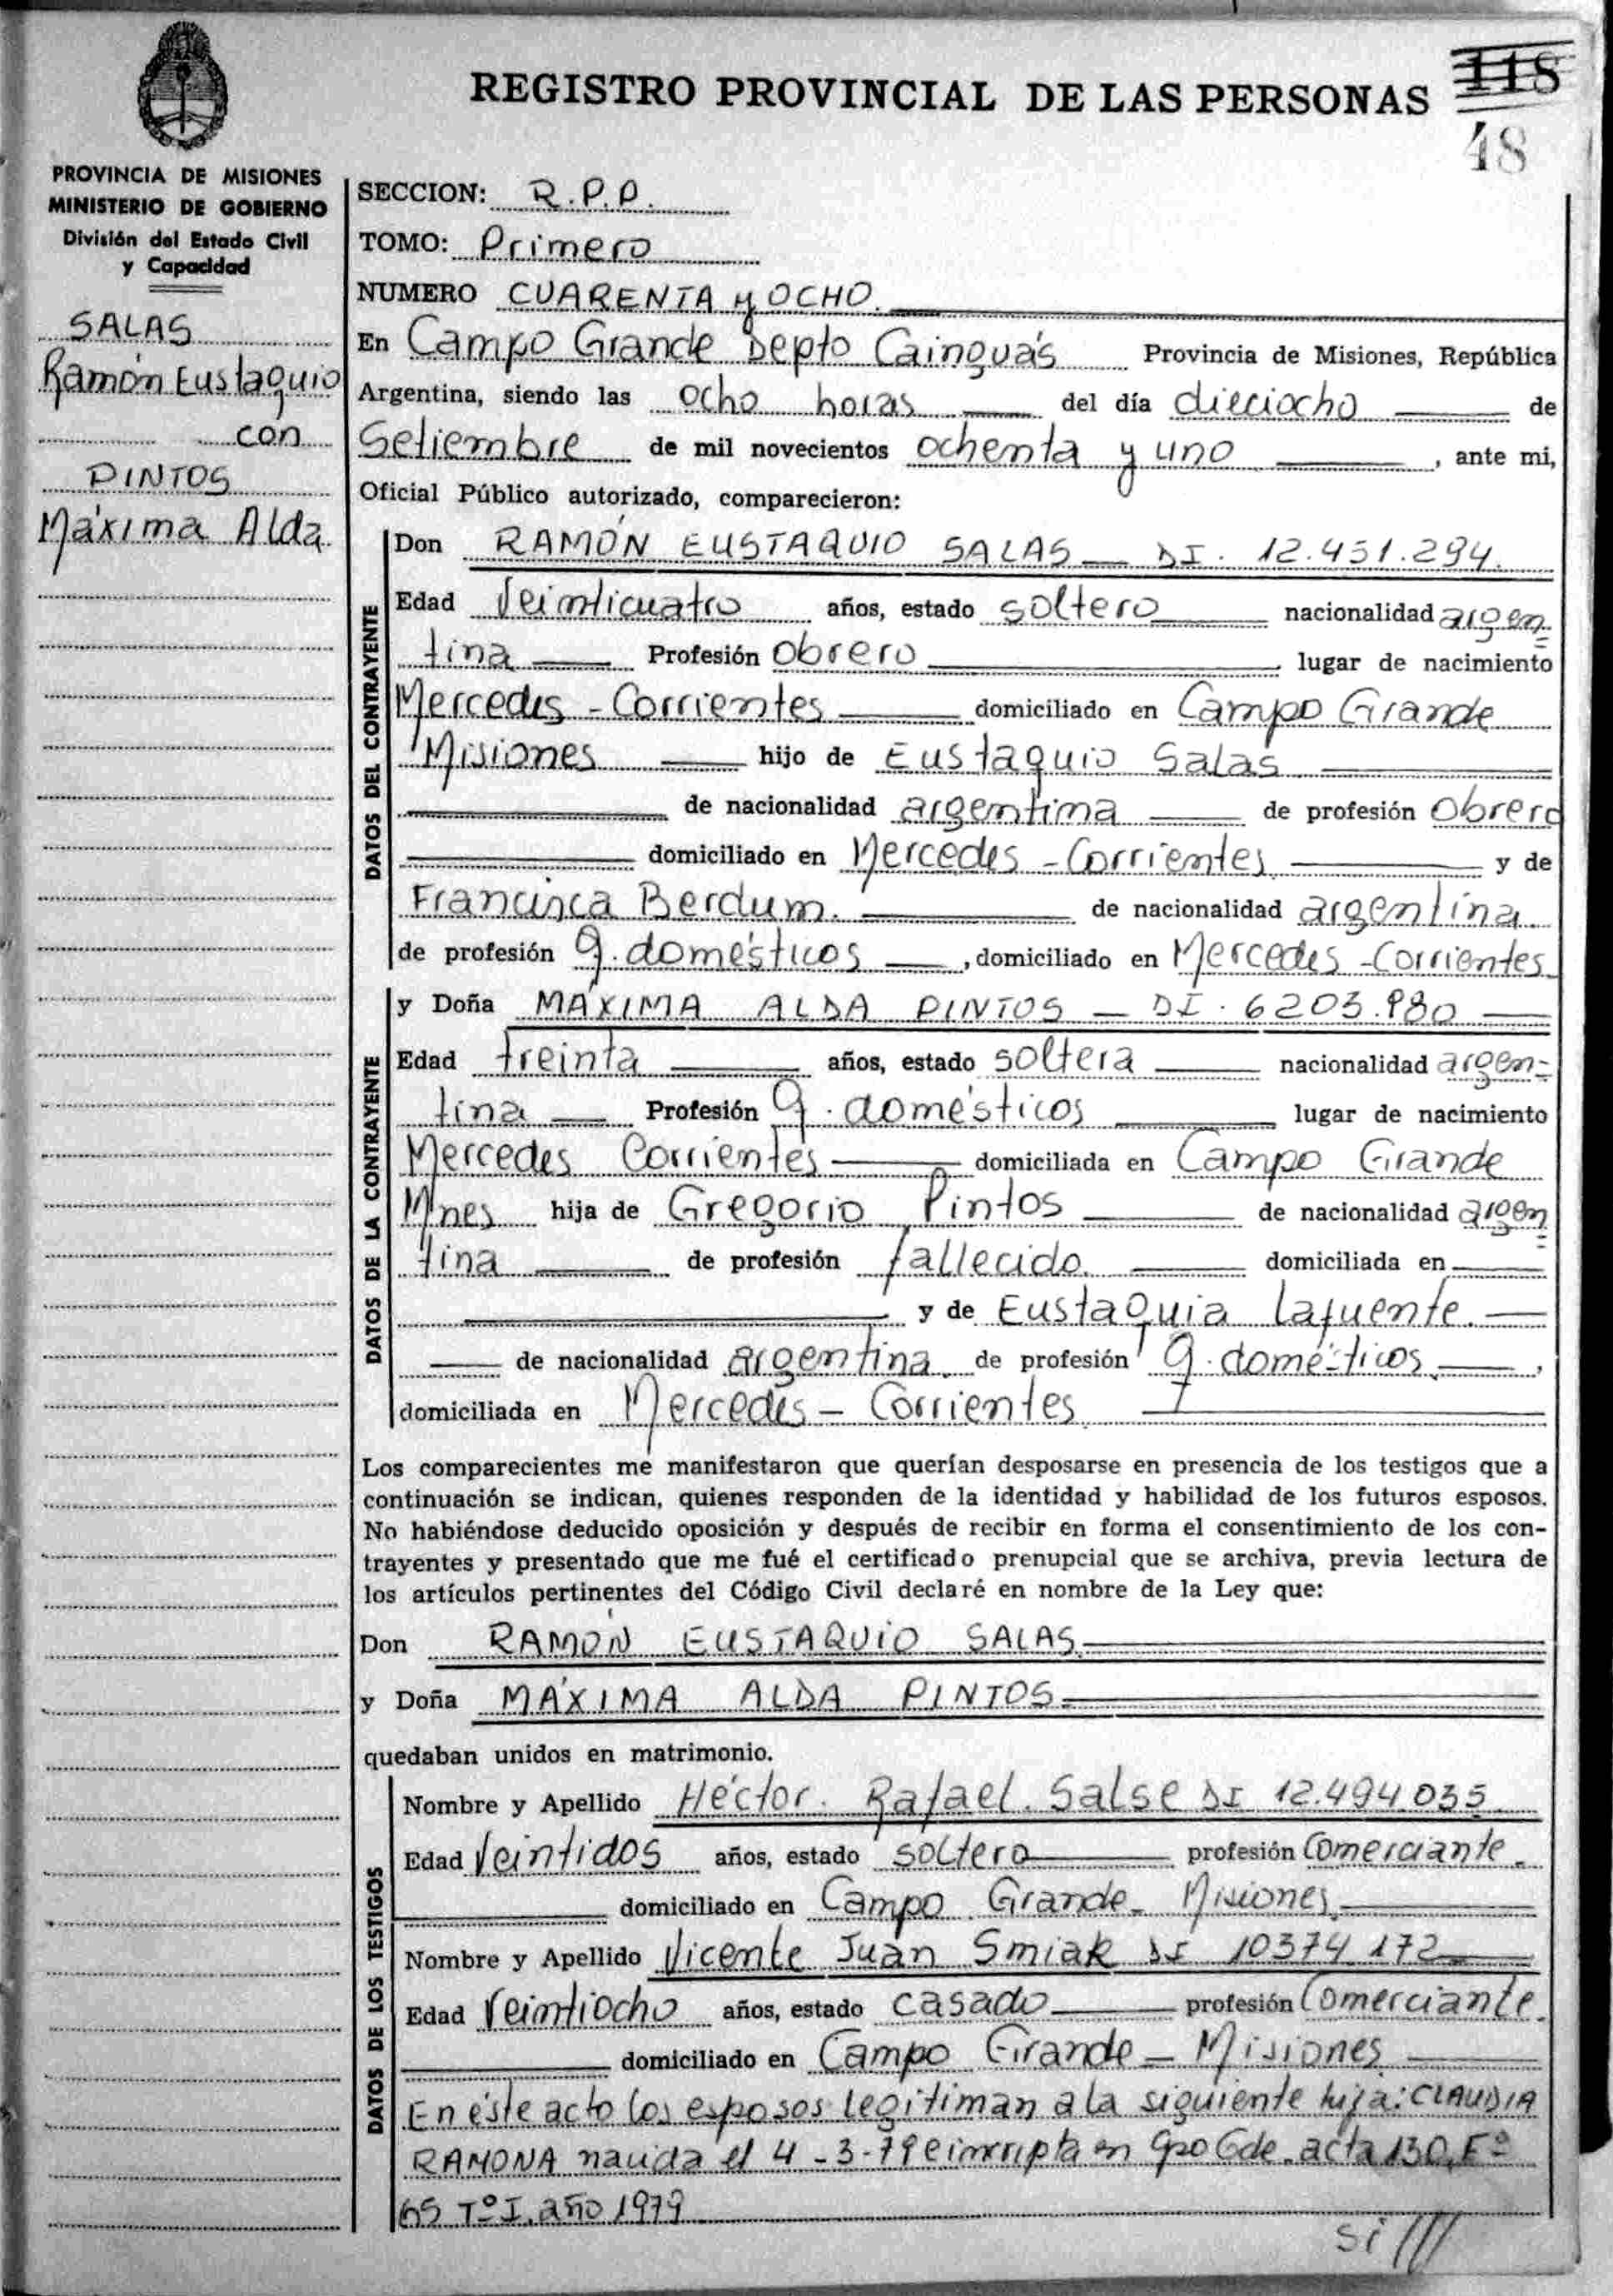 REGISTRO PROVINCIAL DE LAS PERSONAS
118
48
PROVINCIA DE MISIONES
MINISTERIO DE GOBIERNO
División del Estado Civil
y Capacidad
SALAS
Ramón Eustaquio
con
PINTOS
Máxima Alda
SECCION: R.P.P.
TOMO: Primero
NUMERO CUARENTA y OCHO.
En Campo Grande Depto Cainguás Provincia de Misiones, República
Argentina, siendo las ocho horas del día dieciocho de
Setiembre de mil novecientos ochenta y uno, ante mi,
Oficial Público autorizado, comparecieron:
DATOS DEL CONTRAYENTE
Don RAMÓN EUSTAQUIO SALAS — DI. 12.451.294.
Edad Veinticuatro años, estado soltero nacionalidad argen=
tina Profesión Obrero lugar de nacimiento
Mercedes - Corrientes domiciliado en Campo Grande
Misiones hijo de Eustaquio Salas
de nacionalidad argentina de profesión Obrero
domiciliado en Mercedes - Corrientes y de
Francisca Berdum. de nacionalidad argentina.
de profesión q. domésticos, domiciliado en Mercedes - Corrientes
DATOS DE LA CONTRAYENTE
y Doña MÁXIMA ALDA PINTOS — DI. 6203.980
Edad treinta años, estado soltera nacionalidad argen=
tina Profesión q. domésticos lugar de nacimiento
Mercedes Corrientes domiciliada en Campo Grande
Mnes hija de Gregorio Pintos de nacionalidad argen=
tina de profesión fallecido. domiciliada en
y de Eustaquia Lafuente.
de nacionalidad argentina de profesión q. domésticos,
domiciliada en Mercedes - Corrientes
Los comparecientes me manifestaron que querían desposarse en presencia de los testigos que a
continuación se indican, quienes responden de la identidad y habilidad de los futuros esposos.
No habiéndose deducido oposición y después de recibir en forma el consentimiento de los con-
trayentes y presentado que me fué el certificado prenupcial que se archiva, previa lectura de
los artículos pertinentes del Código Civil declaré en nombre de la Ley que:
Don RAMÓN EUSTAQUIO SALAS
y Doña MÁXIMA ALDA PINTOS
quedaban unidos en matrimonio.
DATOS DE LOS TESTIGOS
Nombre y Apellido Héctor. Rafael. Salse DI 12.494.035
Edad Veintidos años, estado soltero profesión Comerciante
domiciliado en Campo Grande - Misiones
Nombre y Apellido Vicente Juan Smiak DI 10374 172
Edad Veintiocho años, estado casado profesión Comerciante
domiciliado en Campo Grande - Misiones
En éste acto los esposos legitiman a la siguiente hija: CLAUDIA
RAMONA nacida el 4-3-79 e inscripta en Cpo Gde. acta 130, Fº
65 Tº I. año 1979
si ///